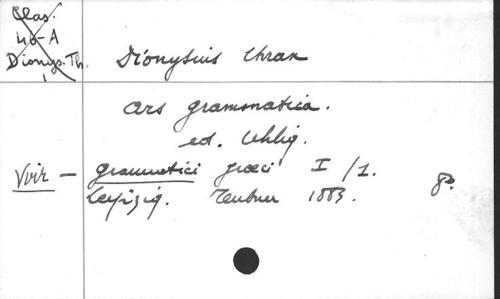 Clas.
46-A
Dionys. Th.
Dionysius Thrax
Ars grammatica.
ed. Uhlig.
Voir - Grammatici graeci I/1.
Leipzig. Teubner 1883. 8°.